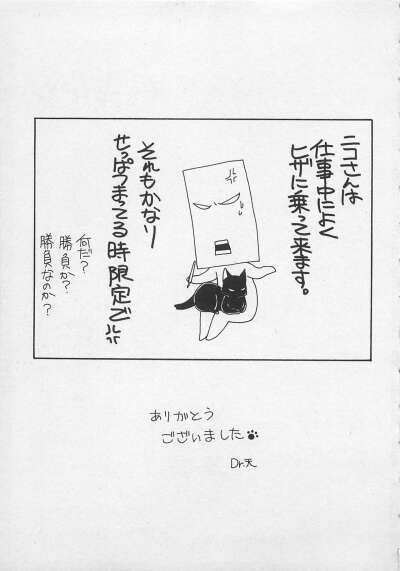 ニコさんは
仕事中によく
ヒザに乗って来ます。
それもかなり
せっぱつまってる時限定で
何だ?
勝負か?
勝負なのか?
ありがとう
ございました
Dr.天